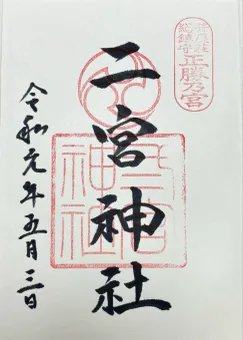 正勝乃宮
二宮神社
令和元年五月三日